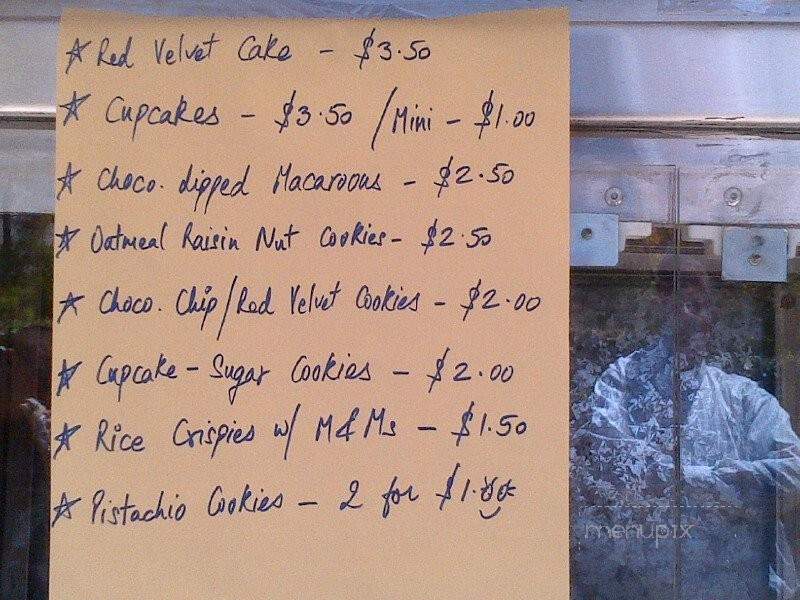 ☆ Red Velvet Cake - $3.50
☆ Cupcakes - $3.50 / Mini - $1.00
☆ Choco. dipped Macaroons - $2.50
☆ Oatmeal Raisin Nut Cookies - $2.50
☆ Choco. Chip/Red Velvet Cookies - $2.00
☆ Cupcake - Sugar Cookies - $2.00
☆ Rice Crispies w/ M&Ms - $1.50
☆ Pistachio Cookies - 2 for $1.00
menupix